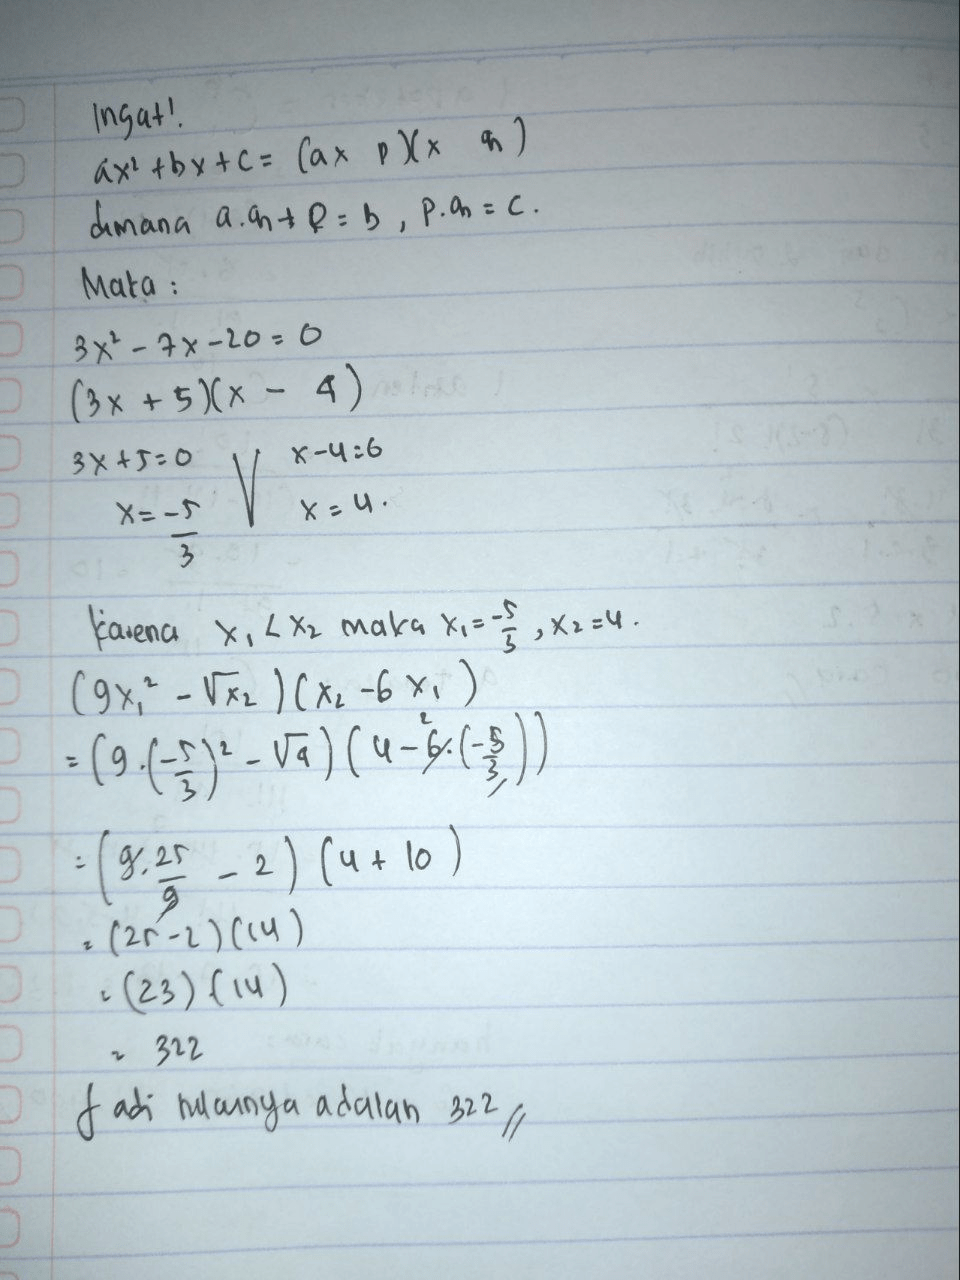 Ingat!
ax² + bx + c = (ax p)(x q)
dimana a.q + p = b, p.q = c.
Maka :
3x² - 7x - 20 = 0
(3x + 5)(x - 4)
3x + 5 = 0 V x - 4 = 0
x = -5/3 x = 4.
karena x₁ < x₂ maka x₁ = -5/3, x₂ = 4.
(9x₁² - √x₂)(x₂ - 6x₁)
= (9.(-5/3)² - √4)(4 - 6.²(-5/3))
= (9.25/9 - 2)(4 + 10)
= (25 - 2)(14)
= (23)(14)
= 322
Jadi nilainya adalah 322 //